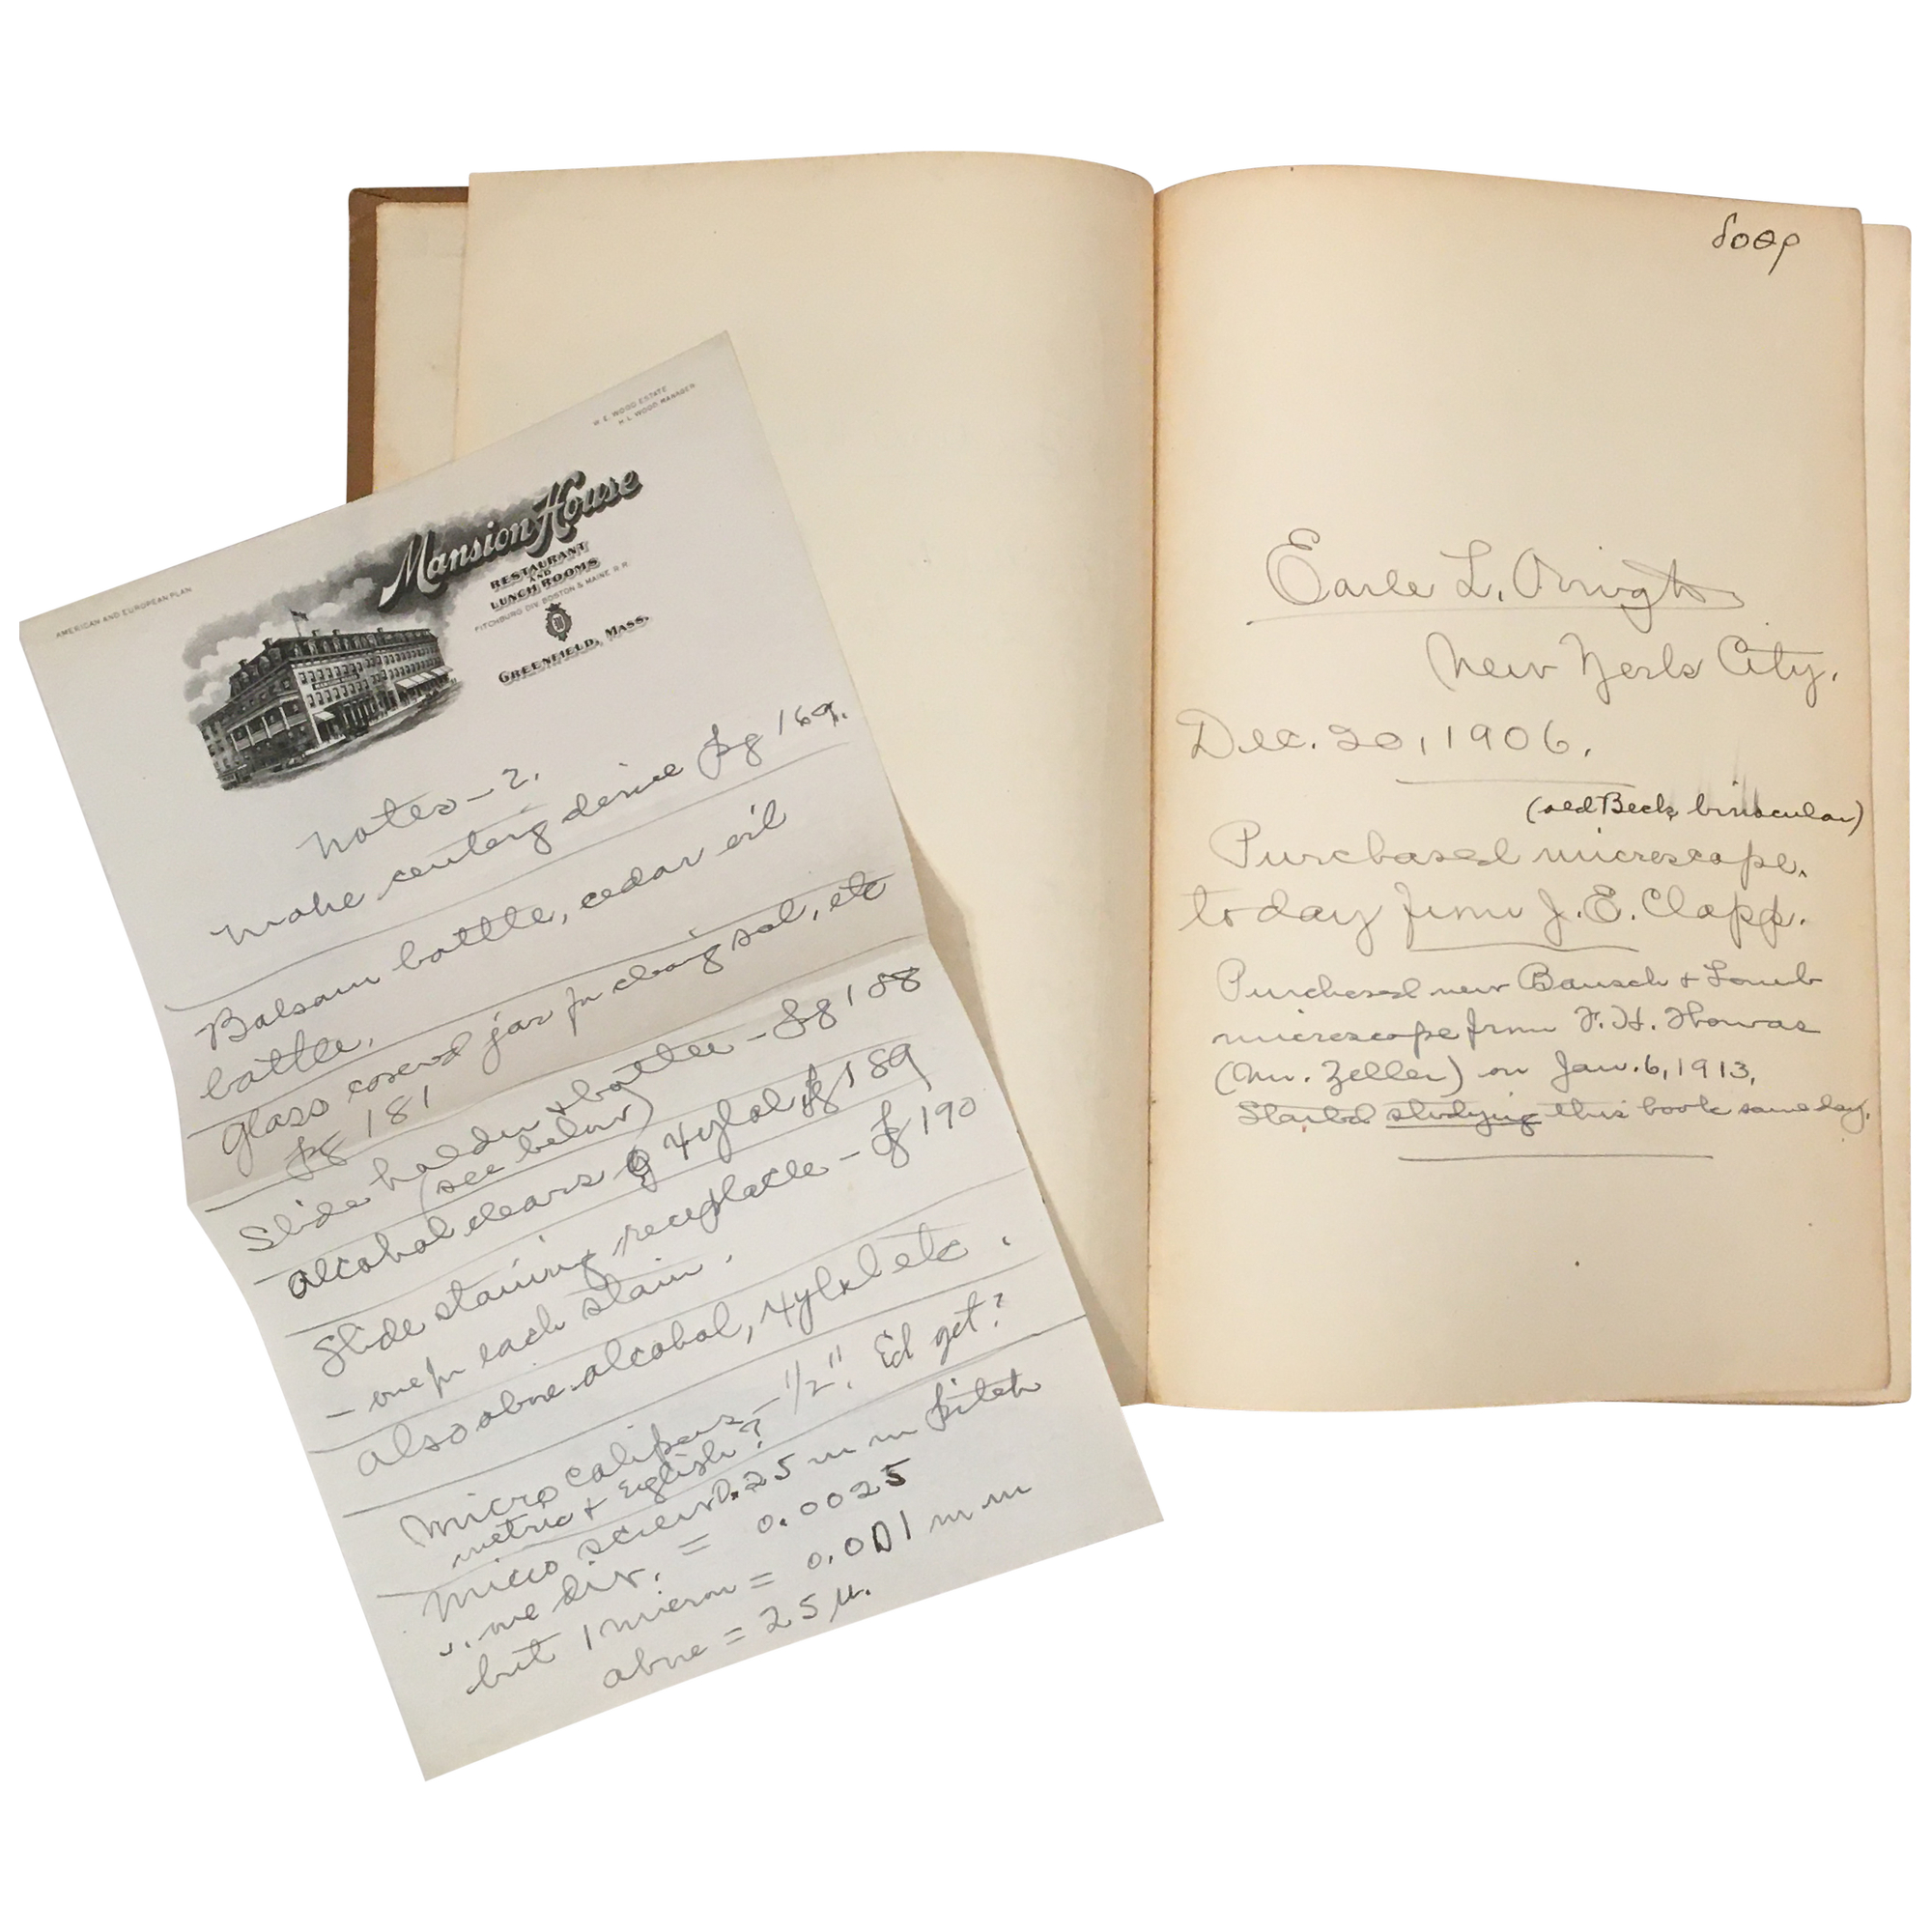 W. E. WOOD ESTATE
H. L. WOOD MANAGER
AMERICAN AND EUROPEAN PLAN
Mansion House
RESTAURANT
AND
LUNCH ROOMS
FITCHBURG DIV. BOSTON & MAINE R.R.
GREENFIELD, MASS.
Notes - 2.
Make centerg device pg 169.
Balsam bottle, cedar oil
bottle.
Glass covered jar for cleaning sol, etc
pg 181
Slide holder & bottle - pg 188
(see below)
Alcohol clears xylol pg 189
Slide staining receptacle - pg 190
- one for each stain.
Also above alcohol, xylol etc.
Micro calipers - 1/2". Ed get?
metric & English?
Micro screw 0.25 mm pitch
∴ one div. = 0.0025
but 1 micron = 0.001 mm
above = 25 μ.
Earle L. Ovington
New York City.
Dec. 20, 1906.
(old Beck binocular)
Purchased microscope
today from J. E. Clapp.
Purchased new Bausch & Lomb
microscope from F. H. Thomas
(Mr. Zeller) on Jan. 6, 1913.
Started studying this book same day.